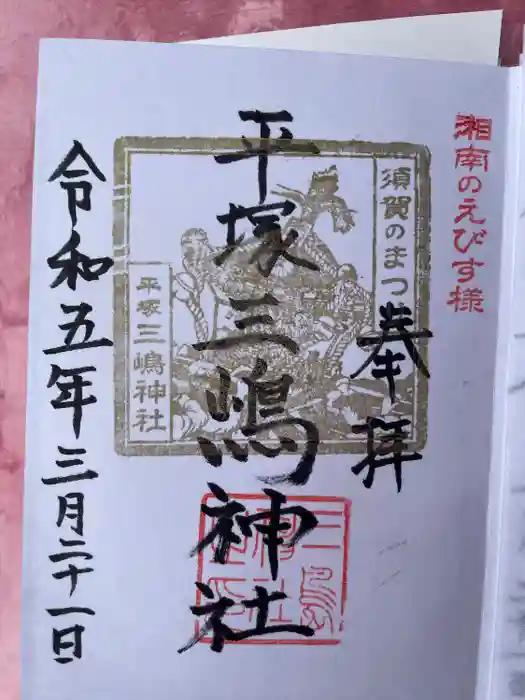 湘南のえびす様
奉拝
須賀のまつ
平塚三嶋神社
平塚三嶋神社
令和五年三月二十一日